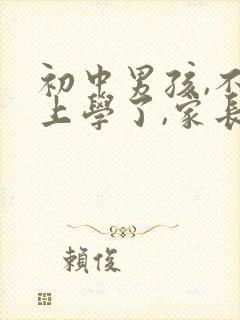 初中男孩,不
上學了,家長
賴俊